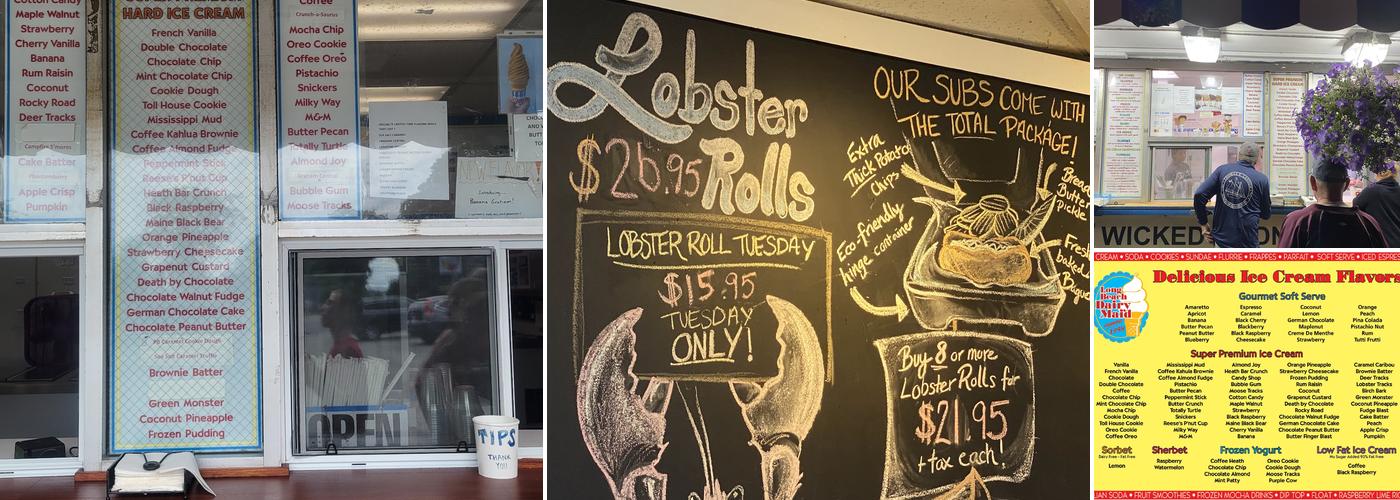 Cotton Candy
Maple Walnut
Strawberry
Cherry Vanilla
Banana
Rum Raisin
Coconut
Rocky Road
Deer Tracks
Campfire S'mores
Cake Batter
Apple Crisp
Pumpkin
HARD ICE CREAM
French Vanilla
Double Chocolate
Chocolate Chip
Mint Chocolate Chip
Cookie Dough
Toll House Cookie
Mississippi Mud
Coffee Kahlua Brownie
Coffee Almond Fudge
Peppermint Stick
Reese's P'nut Cup
Heath Bar Crunch
Black Raspberry
Maine Black Bear
Orange Pineapple
Strawberry Cheesecake
Grapenut Custard
Death by Chocolate
Chocolate Walnut Fudge
German Chocolate Cake
Chocolate Peanut Butter
PB Caramel Cookie Dough
Sea Salt Caramel Truffle
Brownie Batter
Green Monster
Coconut Pineapple
Frozen Pudding
Coffee
Crunch-a-Saurus
Mocha Chip
Oreo Cookie
Coffee Oreo
Pistachio
Snickers
Milky Way
M&M
Butter Pecan
Totally Turtle
Almond Joy
Graham Central
Bubble Gum
Moose Tracks
OPEN
TIPS
THANK
YOU
Lobster
$26.95 Rolls
LOBSTER ROLL TUESDAY
$15.95
TUESDAY
ONLY!
OUR SUBS COME WITH
THE TOTAL PACKAGE!
Extra
Thick Potato
Chips
Eco-friendly
hinge container
Bread
Butter
Pickle
Fresh
baked
Buy 8 or more
Lobster Rolls for
$21.95
+ tax each!
WICKED
CREAM • SODA • COOKIES • SUNDAE • FLURRIE • FRAPPES • PARFAIT • SOFT SERVE • ICED
Long
Beach
Dairy
Maid
Delicious Ice Cream Flavors
Gourmet Soft Serve
Amaretto
Apricot
Banana
Butter Pecan
Peanut Butter
Blueberry
Espresso
Caramel
Black Cherry
Blackberry
Black Raspberry
Cheesecake
Coconut
Lemon
German Chocolate
Maplenut
Creme De Menthe
Strawberry
Orange
Peach
Pina Colada
Pistachio Nut
Rum
Tutti Frutti
Super Premium Ice Cream
Vanilla
French Vanilla
Chocolate
Double Chocolate
Coffee
Chocolate Chip
Mint Chocolate Chip
Mocha Chip
Cookie Dough
Toll House Cookie
Oreo Cookie
Coffee Oreo
Mississippi Mud
Coffee Kahlua Brownie
Coffee Almond Fudge
Pistachio
Butter Pecan
Peppermint Stick
Butter Crunch
Totally Turtle
Snickers
Reese's P'nut Cup
Milky Way
M&M
Almond Joy
Heath Bar Crunch
Candy Shop
Bubble Gum
Moose Tracks
Cotton Candy
Maple Walnut
Strawberry
Black Raspberry
Maine Black Bear
Cherry Vanilla
Banana
Orange Pineapple
Strawberry Cheesecake
Frozen Pudding
Rum Raisin
Coconut
Grapenut Custard
Death by Chocolate
Rocky Road
Chocolate Walnut Fudge
German Chocolate Cake
Chocolate Peanut Butter
Butter Finger Blast
Caramel Caribou
Brownie Batter
Deer Tracks
Lobster Tracks
Birch Bark
Green Monster
Coconut Pineapple
Fudge Blast
Cake Batter
Peach
Apple Crisp
Pumpkin
Sorbet
Dairy Free - Fat Free
Lemon
Sherbet
Raspberry
Watermelon
Frozen Yogurt
Coffee Heath
Chocolate Chip
Chocolate Almond
Mint Patty
Oreo Cookie
Cookie Dough
Moose Tracks
Purple Cow
Low Fat Ice Cream
No Sugar Added 90% Fat Free
Coffee
Black Raspberry
SODA • FRUIT SMOOTHIES • FROZEN MOCHA DRINKS • DIP TOP • FLOAT • RASPBERRY LIME